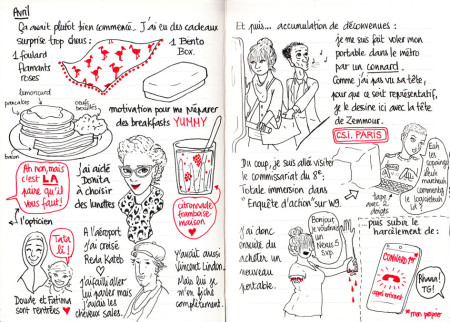 Avril
Ça avait plutôt bien commencé... J'ai eu des cadeaux
surprise trop chous :
1 foulard
flamants
roses
1 Bento
Box.
lemoncurd
pancakes
oeufs
brouillés
bacon
motivation pour me préparer
des breakfasts YUMMY
Ah non, mais
c'est LA
paire qu'il
vous faut!
l'opticien
J'ai aidé
Donita
à choisir
des lunettes
citronnade
framboise
maison
Tata
li!
Doude et Fatima
sont rentrées
A l'aéroport
j'ai croisé
Reda Kateb
J'ai failli aller
lui parler mais
j'avais les
cheveux sales...
Y'avait aussi
Vincent Lindon.
Mais lui je
m'en fiche
complètement.
Et puis... accumulation de déconvenues :
je me suis fait voler mon
portable dans le métro
par un connard.
Comme j'ai pas vu sa tête,
pour que ce soit représentatif,
je le dessine ici avec la tête
de Zemmour.
C.S.I. PARIS
Du coup, je suis allée visiter
le commissariat du 8e :
Totale immersion dans
"Enquête d'action" sur W9.
tape avec
2
doigts
J'ai donc
ensuite du
acheter un
nouveau
portable.
Bonjour,
je voudrais
un
Nexus 5
Exp
puis subir le
harcèlement de :
CONNARD 1er
appel entrant
Rhaaa!
TG!